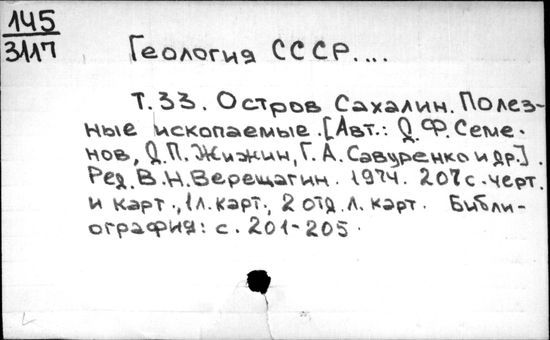 145
3117
Геология СССР....
Т.33. Остров Сахалин. Полез-
ные ископаемые. [Авт.: Д.Ф. Семе-
нов, Д.П. Жижин, Г.А. Савуренко и др.].
Ред. В.Н. Верещагин. 1974. 207 с. черт.
и карт., 1 л. карт., 2 отд. л. карт. Библи-
ография: с. 201-205.